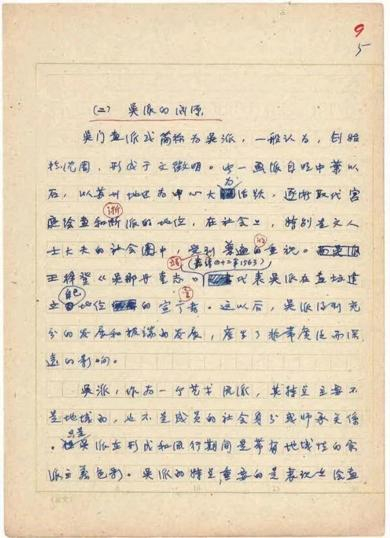 9
5
(二) 吴派的渊源
吴门画派或简称为吴派，一般认为，创始
于沈周，形成于文徵明。这一画派自明中叶以
后，以苏州地区为中心大为活跃，逐渐取代宫
廷绘画和浙派的地位，在社会上，特别是文人
士大夫的社会圈中，受到普遍的重视。
王穉登《吴郡丹青志》(嘉靖四十二年1563)代表吴派在画坛建
立自己地位的宣言书。这以后，吴派得到充
分的发展和极端的发展，产生了非常广泛而深
远的影响。
吴派，作为一个艺术流派，其特点主要不
是地域的，也不是成员的社会身分或师承关系
。只是吴派在形成和流行期间是带有地域性的宗
派主义色彩。吴派的特点重要的是表现在绘画